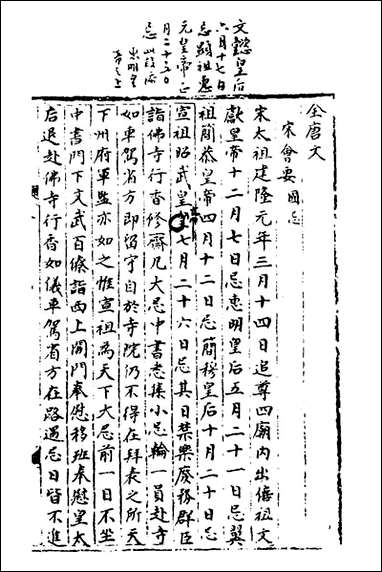 文懿皇后
六月十七日
忌顯祖惠
元皇帝正
月二十五日
忌
全唐文
宋會要 國忌
宋太祖建隆元年三月十四日追尊四廟内出僖祖文
獻皇帝十二月七日忌惠明皇后五月二十一日忌翼
祖簡恭皇帝四月十二日忌簡穆皇后十月二十日忌
宣祖昭武皇帝七月二十六日忌其日禁樂廢務群臣
詣佛寺行香修齋凡大忌中書悉集小忌輪一員赴寺
如車駕省方即留守自於寺院仍不得在拜表之所天
下州府軍監亦如之惟宣祖為天下大忌前一日不坐
中書門下文武百僚詣西上閤門奉慰移班奉慰皇太
后退赴佛寺行香如儀車駕省方在路遇忌日皆不進